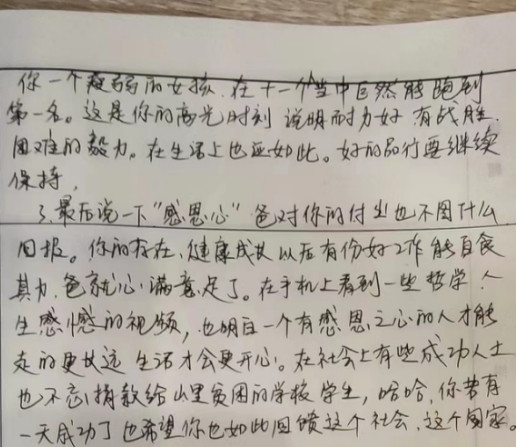 你一个瘦弱的女孩.在十一个当中居然能跑到
第一名。这是你的高光时刻 说明耐力好 有战胜.
困难的毅力。在生活上也应如此。好的品行要继续
保持,
3.最后说一下“感恩心”爸对你的付出也不图什么
回报。你的存在.健康成长 以后有份好工作能自食
其力.爸就心满意足了。在手机上看到一些哲学人
生感憾的视频,也明白一个有感恩之心的人才能
走的更长远 生活才会更开心。在社会上有些成功人士
也不忘捐款给山里贫困的学校学生,哈哈.你若有
一天成功了也希望你也如此回馈这个社会.这个国家。